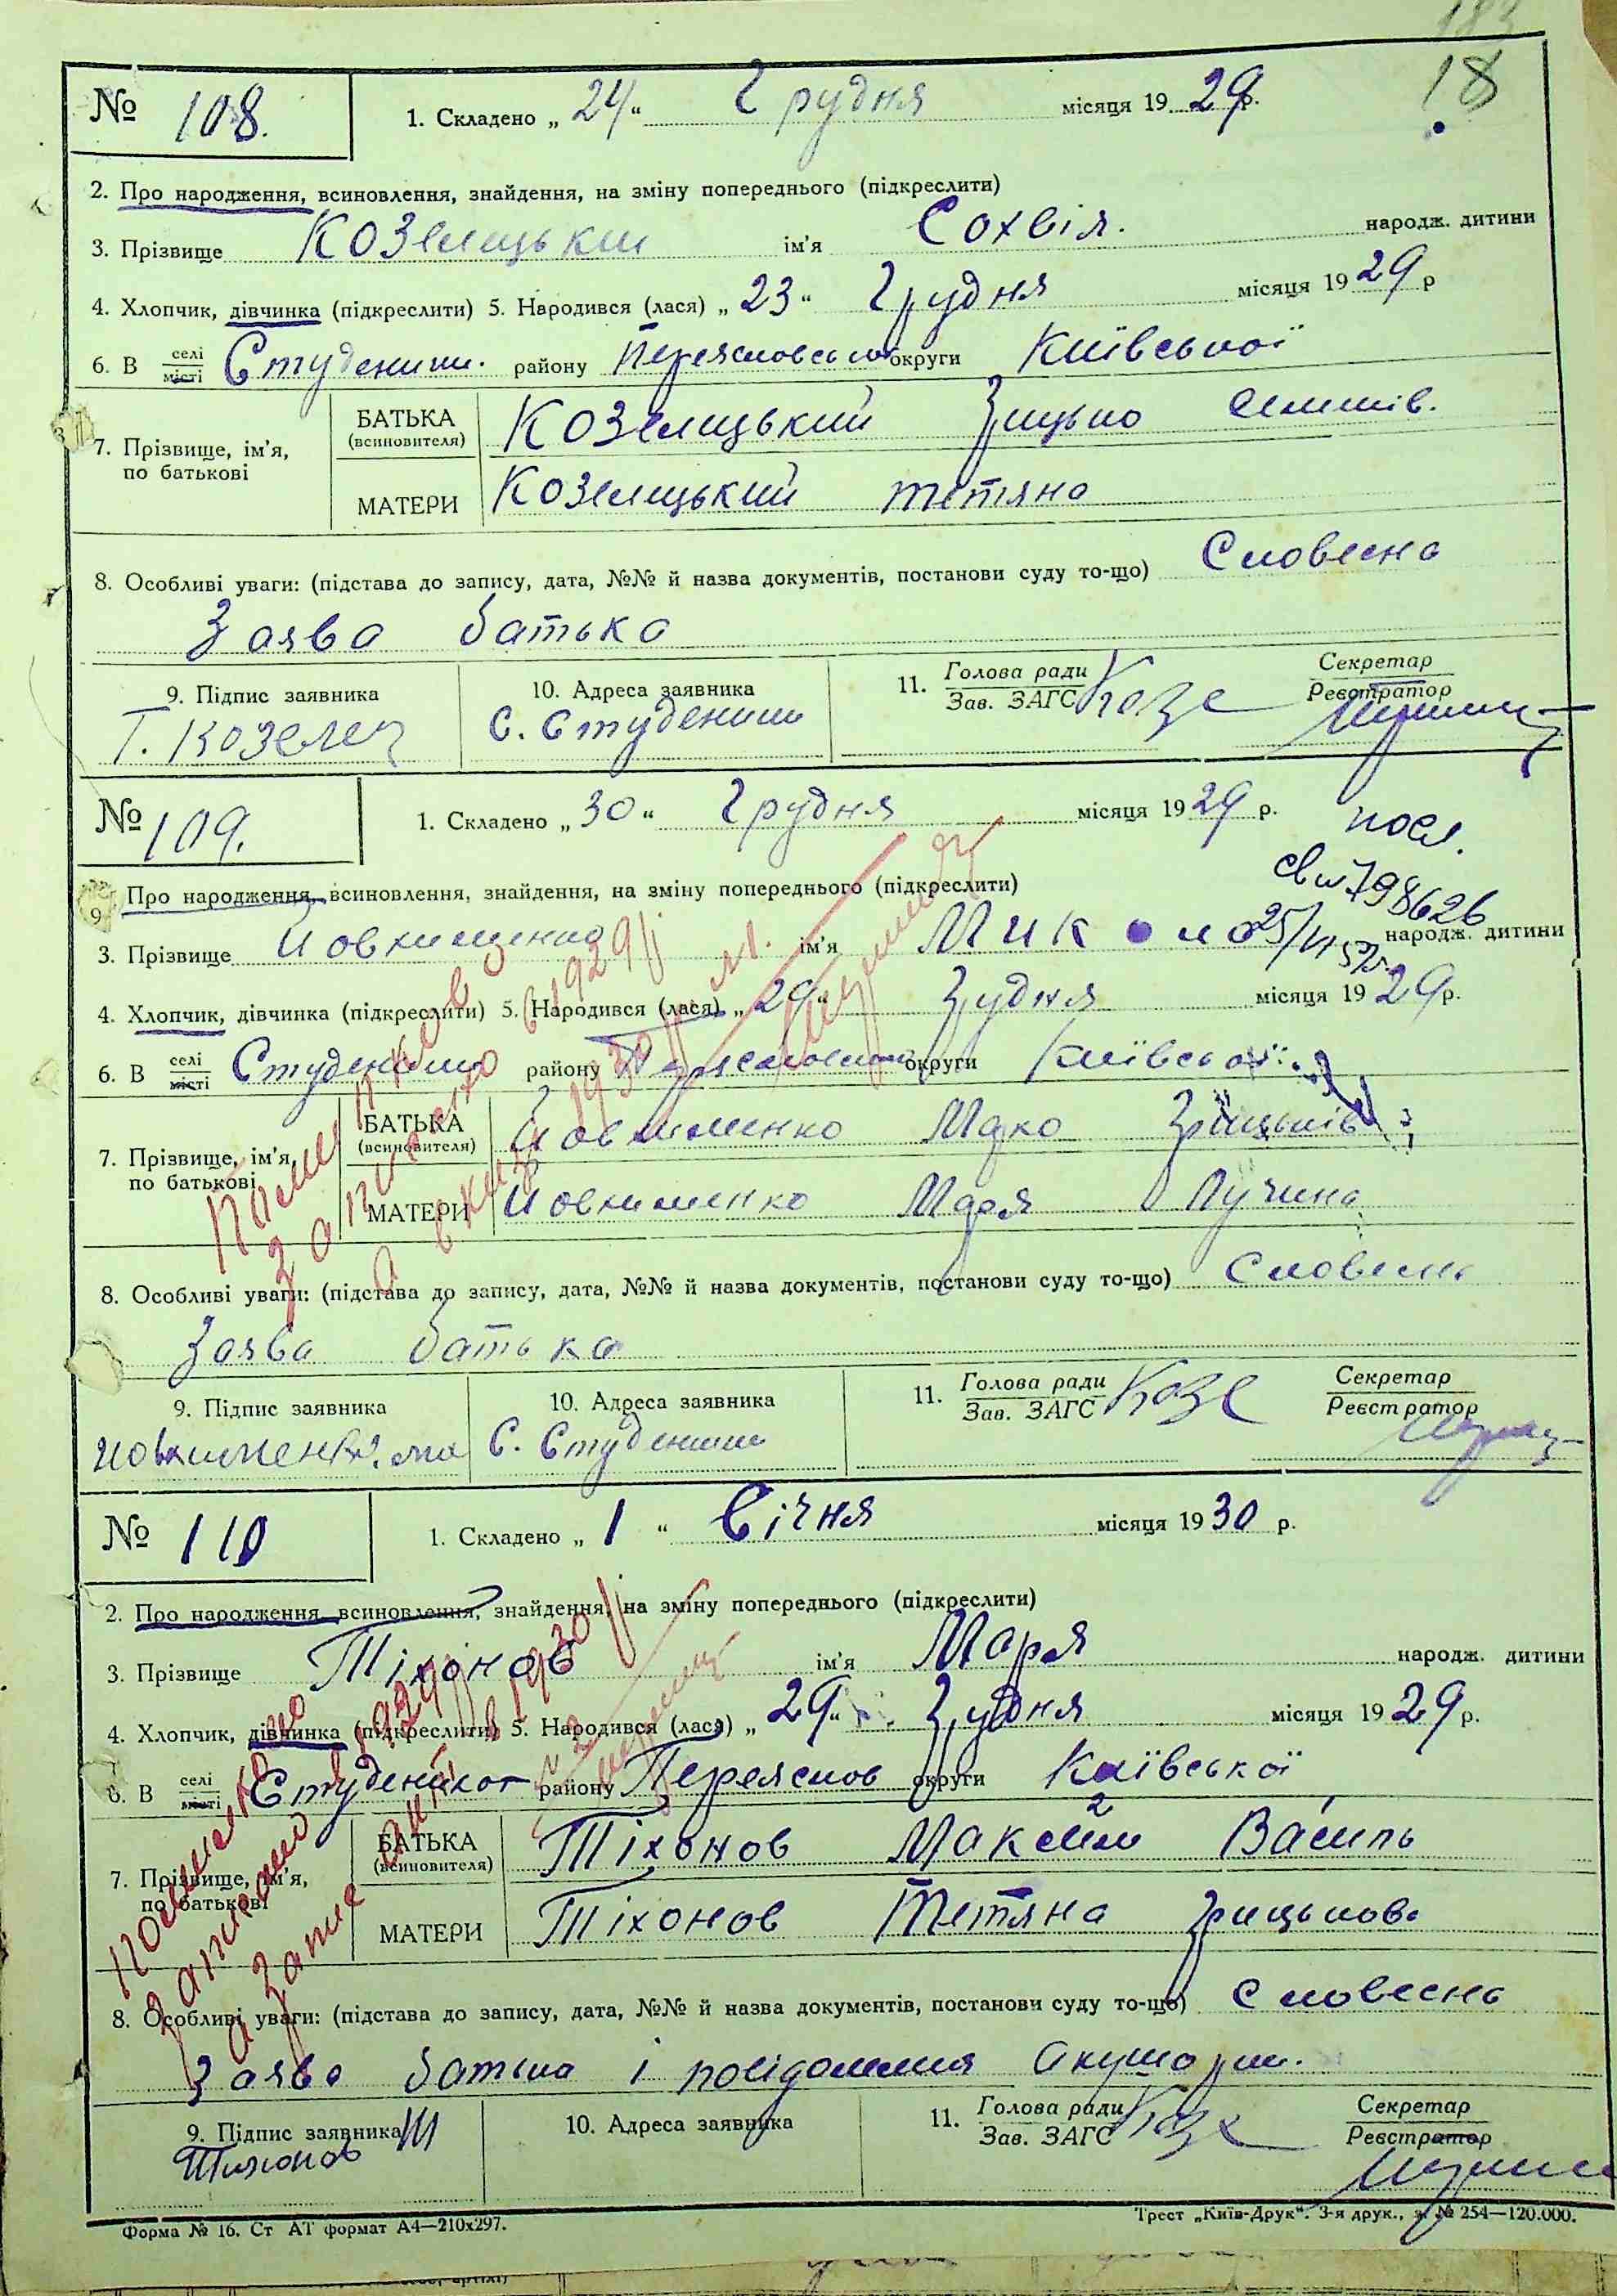 18
№ 108. 1. Складено „ 24 “ Грудня місяця 19 29 р.
2. Про народження, всиновлення, знайдення, на зміну попереднього (підкреслити)
3. Прізвище Козелицький ім'я Сохвія. народж. дитини
4. Хлопчик, дівчинка (підкреслити) 5. Народився (лася) „ 23 “ Грудня місяця 19 29 р
6. В селі місті Студеники. району Переясловсько округи Київської
7. Прізвище, ім'я, по батькові
БАТЬКА (всиновителя) Козелицький Грицько
МАТЕРИ Козелицький Тетяна
8. Особливі уваги: (підстава до запису, дата, №№ й назва документів, постанови суду то-що) Словесна
Заява батька
9. Підпис заявника 10. Адреса заявника 11. Голова ради Зав. ЗАГС Секретар Реєстратор
Г. Козелец С. Студеники Козе
№ 109. 1. Складено „ 30 “ Грудня місяця 19 29 р.
Про народження, всиновлення, знайдення, на зміну попереднього (підкреслити)
798626
3. Прізвище ім'я Микола народж. дитини
4. Хлопчик, дівчинка (підкреслити) 5. Народився (лася) „ 29 “ Грудня місяця 19 29 р.
6. В селі місті Студеники району округи Київської
7. Прізвище, ім'я, по батькові
БАТЬКА (всиновителя) Йовхименко Марко Грицьків
МАТЕРИ Йовхименко Маря
8. Особливі уваги: (підстава до запису, дата, №№ й назва документів, постанови суду то-що) Словесна
Заява батька
9. Підпис заявника 10. Адреса заявника 11. Голова ради Зав. ЗАГС Секретар Реєстратор
С. Студеники Козе
Помилково записано в 1929 р.
№ 110 1. Складено „ 1 “ Січня місяця 19 30 р.
2. Про народження, всиновлення, знайдення, на зміну попереднього (підкреслити)
3. Прізвище Тіхонов ім'я Маря народж. дитини
4. Хлопчик, дівчинка (підкреслити) 5. Народився (лася) „ 29 “ Грудня місяця 19 29 р.
6. В селі місті Студениках району Переяслов округи Київської
7. Прізвище, ім'я, по батькові
БАТЬКА (всиновителя) Тіхонов Максим Василь
МАТЕРИ Тіхонов Тетяна Грицькова
8. Особливі уваги: (підстава до запису, дата, №№ й назва документів, постанови суду то-що) Словесна
Заява батька і повідомлення Акушорки.
9. Підпис заявника 10. Адреса заявника 11. Голова ради Зав. ЗАГС Секретар Реєстратор
Тихонов Козе
Помилково записано
Форма № 16. Ст АТ формат А4—210х297. Трест „Київ-Друк“. 3-я друк., з. № 254—120.000.